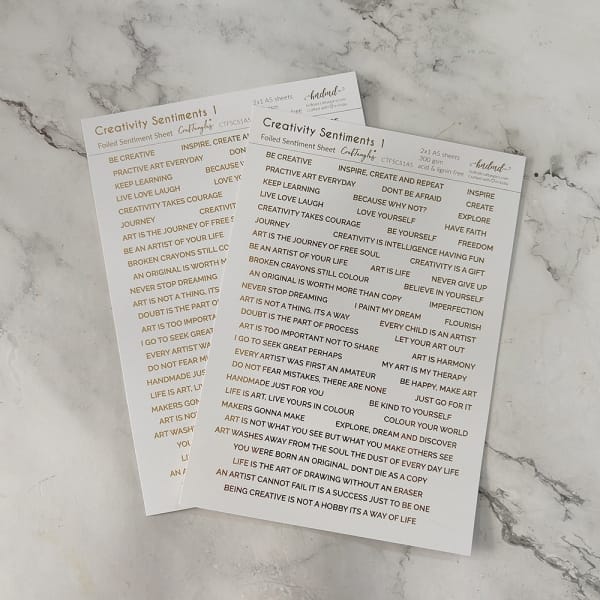 Creativity Sentiments 1
Foiled Sentiment Sheet Craftangles CTFSCS1A5
2x1 A5 sheets
hndmd
BE CREATIVE INSPIRE, CREATE AND
PRACTICE ART EVERYDAY DON'T
KEEP LEARNING BECAUSE
LIVE LOVE LAUGH LOVE
CREATIVITY TAKES COURAGE
JOURNEY CREATIVITY
ART IS THE JOURNEY OF FREE
BE AN ARTIST OF YOUR LIFE
BROKEN CRAYONS STILL
AN ORIGINAL IS WORTH MORE
NEVER STOP DREAMING
ART IS NOT A THING, ITS
DOUBT IS THE PART OF
ART IS TOO IMPORTANT
I GO TO SEEK GREAT
EVERY ARTIST WAS
DO NOT FEAR
HANDMADE JUST
LIFE IS ART, LIVE
MAKERS GONNA
ART IS NOT
ART WASHES
YOU
LIFE
AN ART
BEING
Creativity Sentiments 1
Foiled Sentiment Sheet Craftangles CTFSCS1A5
2x1 A5 sheets
300 gsm
acid & lignin free
hndmd
BE CREATIVE INSPIRE, CREATE AND REPEAT INSPIRE
PRACTICE ART EVERYDAY DONT BE AFRAID CREATE
KEEP LEARNING BECAUSE WHY NOT? EXPLORE
LIVE LOVE LAUGH LOVE YOURSELF HAVE FAITH
CREATIVITY TAKES COURAGE BE YOURSELF FREEDOM
JOURNEY CREATIVITY IS INTELLIGENCE HAVING FUN
ART IS THE JOURNEY OF FREE SOUL CREATIVITY IS A GIFT
BE AN ARTIST OF YOUR LIFE ART IS LIFE NEVER GIVE UP
BROKEN CRAYONS STILL COLOUR BELIEVE IN YOURSELF
AN ORIGINAL IS WORTH MORE THAN COPY IMPERFECTION
NEVER STOP DREAMING I PAINT MY DREAM FLOURISH
ART IS NOT A THING, ITS A WAY EVERY CHILD IS AN ARTIST
DOUBT IS THE PART OF PROCESS LET YOUR ART OUT
ART IS TOO IMPORTANT NOT TO SHARE ART IS HARMONY
I GO TO SEEK GREAT PERHAPS MY ART IS MY THERAPY
EVERY ARTIST WAS FIRST AN AMATEUR BE HAPPY, MAKE ART
DO NOT FEAR MISTAKES, THERE ARE NONE JUST GO FOR IT
HANDMADE JUST FOR YOU BE KIND TO YOURSELF
LIFE IS ART, LIVE YOURS IN COLOUR COLOUR YOUR WORLD
MAKERS GONNA MAKE EXPLORE, DREAM AND DISCOVER
ART IS NOT WHAT YOU SEE BUT WHAT YOU MAKE OTHERS SEE
ART WASHES AWAY FROM THE SOUL THE DUST OF EVERY DAY LIFE
YOU WERE BORN AN ORIGINAL, DONT DIE AS A COPY
LIFE IS THE ART OF DRAWING WITHOUT AN ERASER
AN ARTIST CANNOT FAIL IT IS A SUCCESS JUST TO BE ONE
BEING CREATIVE IS NOT A HOBBY ITS A WAY OF LIFE